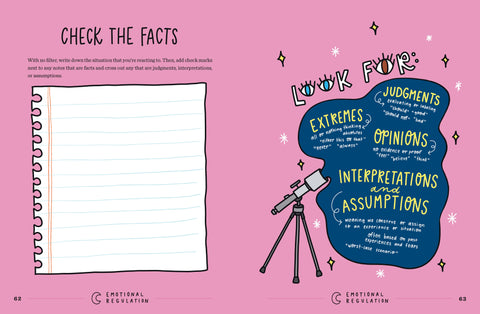 CHECK THE FACTS
With no filter, write down the situation that you're reacting to. Then, add check marks
next to any notes that are facts and cross out any that are judgments, interpretations,
or assumptions.
62
EMOTIONAL
REGULATION
LOOK FOR:
JUDGMENTS
evaluating or labeling
"should" "good"
"should not" "bad"
EXTREMES
all or nothing thinking
absolutes
"either this or that"
"never" "always"
OPINIONS
no evidence or proof
"feel" "believe" "think"
INTERPRETATIONS
and
ASSUMPTIONS
meaning we construct or assign
to an experience or situation
often based on past
experiences and fears
"worst-case scenario"
EMOTIONAL
REGULATION
63